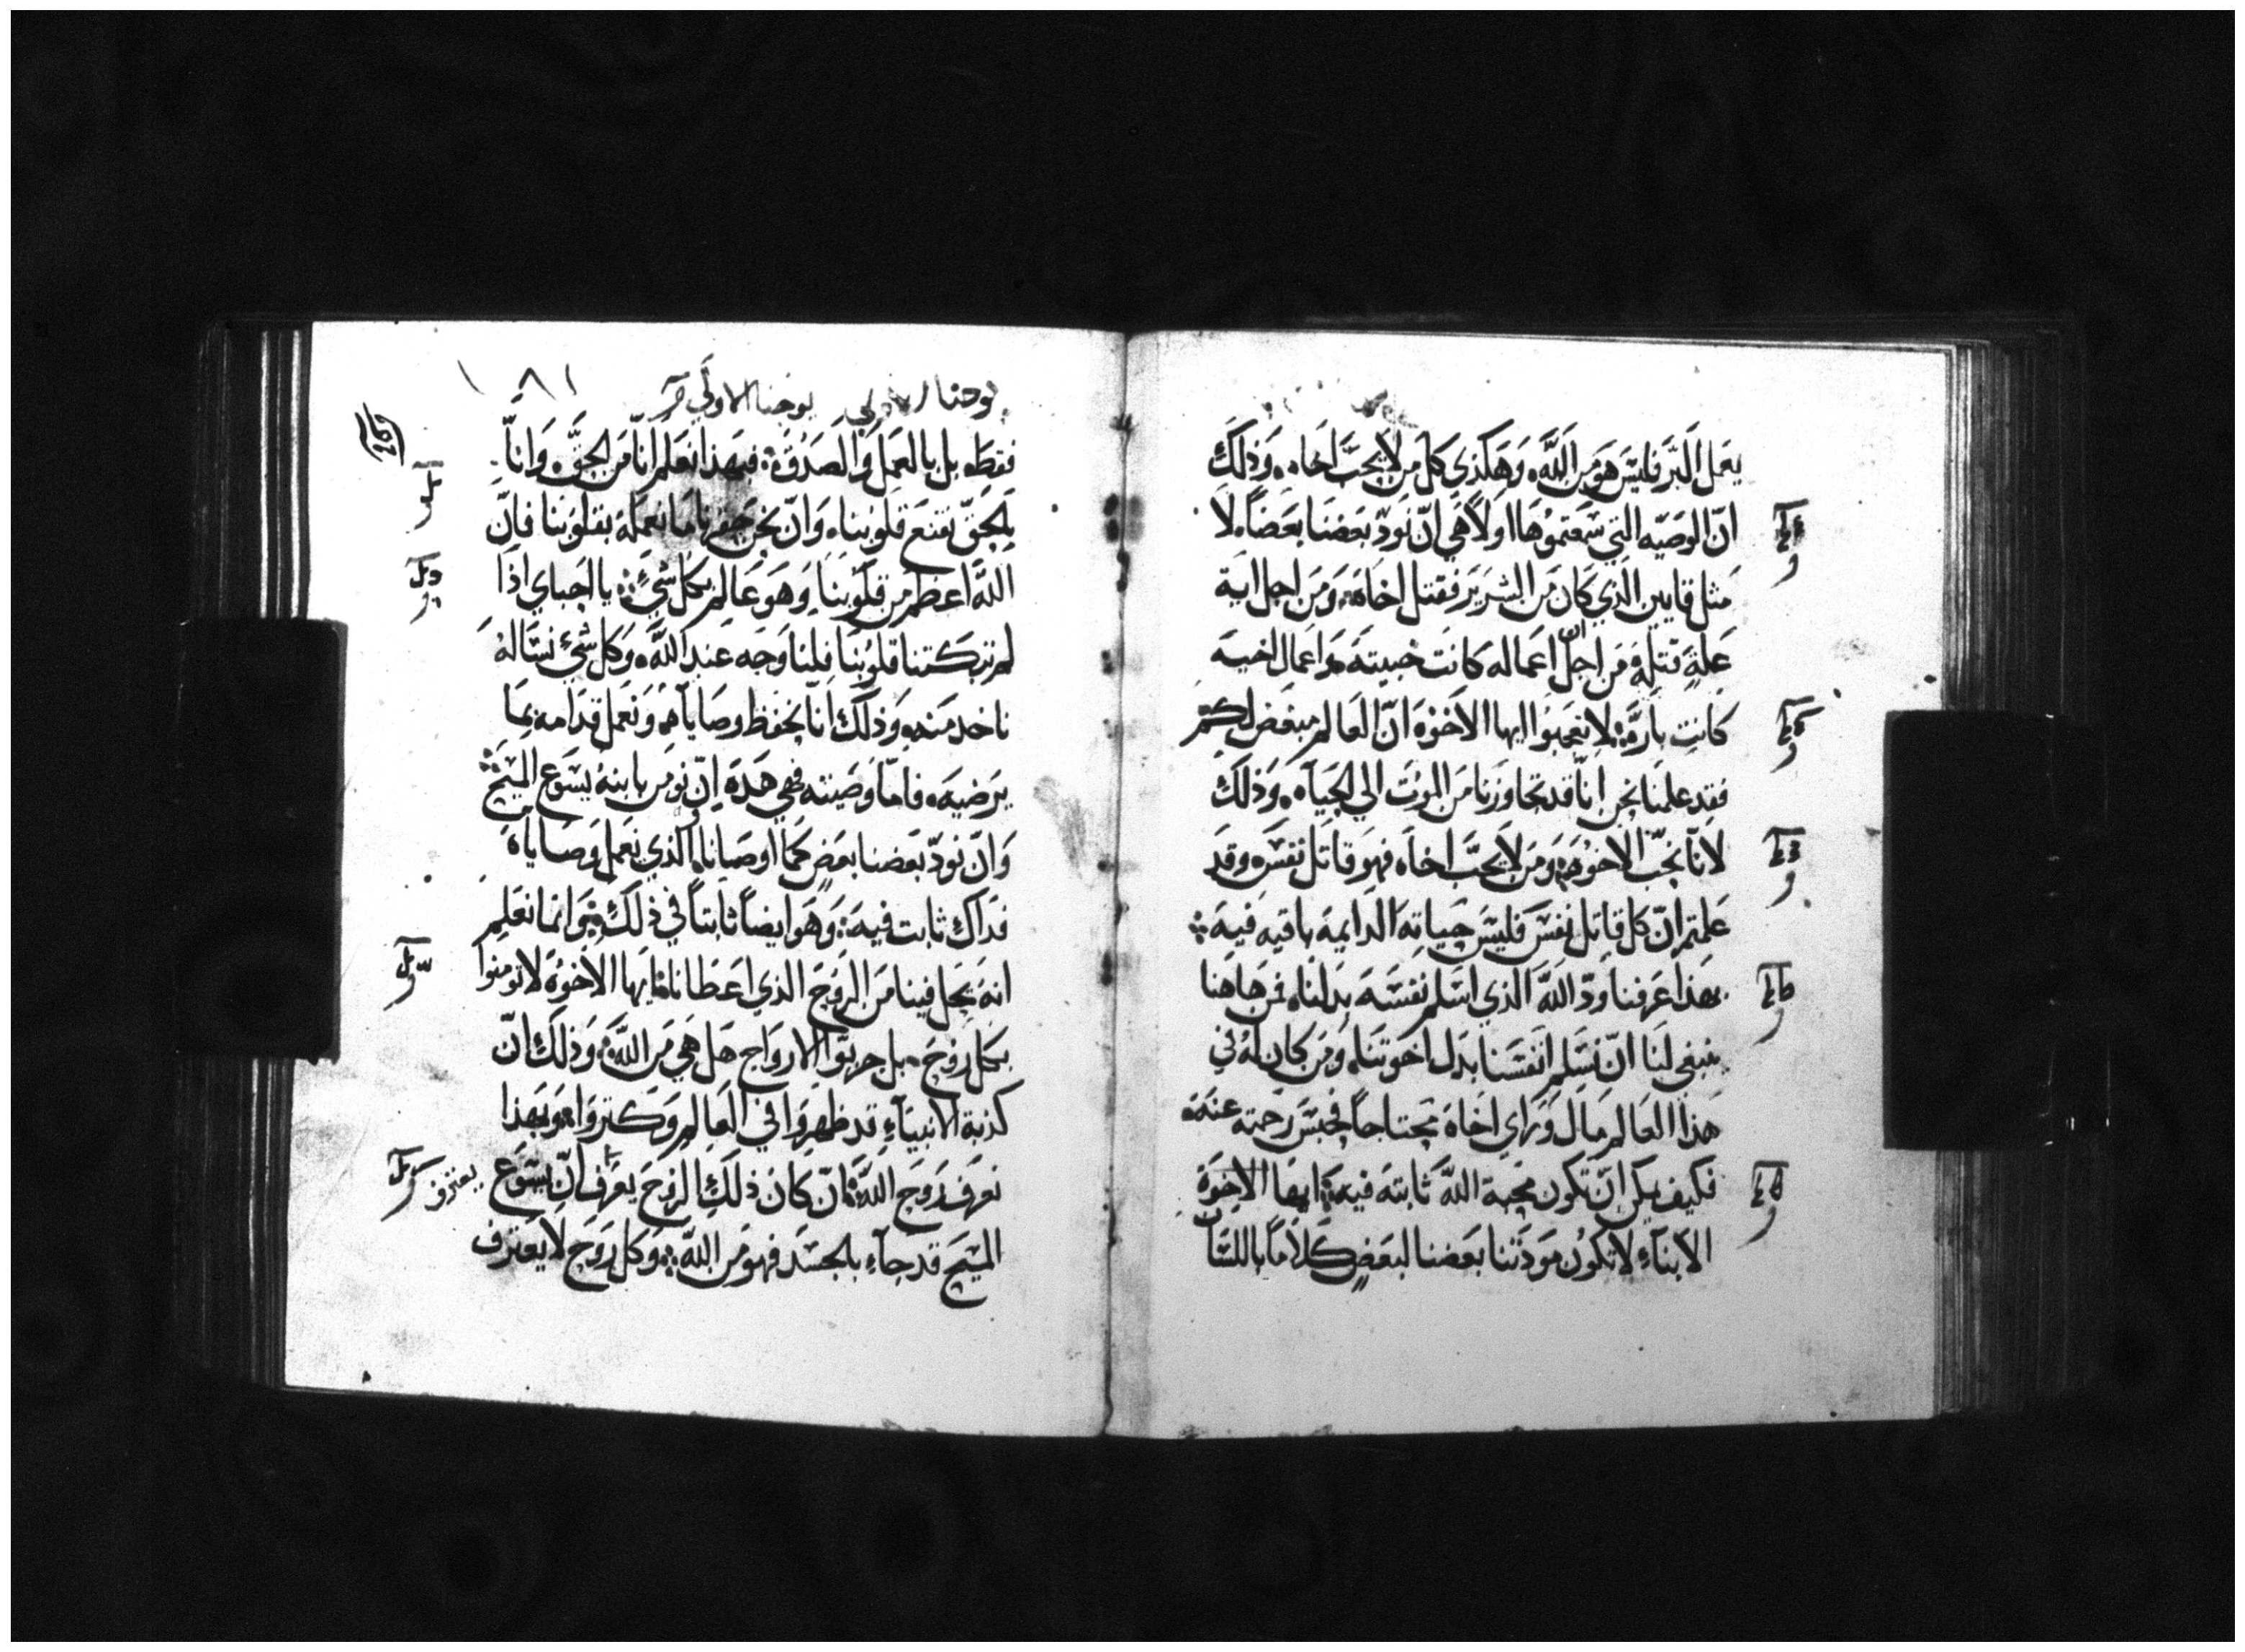 يعمل البر فليس هو من الله وهكذي كل من لا يحب اخاه وذلك
ان الوصيه التي سمعتموها اولا هي ان نود بعضنا بعضا لا
مثل قايين الذي كان من الشرير فقتل اخاه ومن اجل اية
علة قتله من اجل ان اعماله كانت خبيته واعمال اخيه
كانت باره لا تعجبوا ايها الاخوه ان العالم مبغض لكم
فقد علمنا نحن انا قد تجاوزنا من الموت الي الحياه وذلك
لانا نحب الاخوه ومن لا يحب اخاه فهو قاتل نفسه وقد
علمتم ان كل قاتل نفس فليس حياته الدايمه باقيه فيه
بهذا عرفنا ود الله الذي اسلم نفسه بدلنا فمن هاهنا
ينبغي لنا ان نسلم انفسنا بدل اخوتنا ومن كان له في
هذا العالم مال وراي اخاه محتاجا فحبس رحمته عنه
فكيف يمكن ان تكون محبة الله ثابته فيه ايها الاخوة
الابناء لا تكون مودتنا بعضنا لبعض كلاما باللسان
١٨١
يوحنا الاولي
فقط بل بالعمل والصدق فبهذا نعلم انا من الحق وانا
بالحق تقنع قلوبنا وان نحن حقرنا ما نعمله بقلوبنا فان
الله اعظم من قلوبنا وهو عالم بكل شي يا احباي اذا
لم تبكتنا قلوبنا فلنا وجه عند الله وكل شي نساله
ناخد منه وذلك انا نحفظ وصاياه ونعمل قدامه بما
يرضيه فاما وصيته فهي هده ان نومن بابنه يسوع المسيح
وان نود بعضنا بعض كما اوصانا والذي نعمل وصاياه
فداك ثابت فيه وهو ايضا ثابتا في ذلك وانما نعلم
انه يحل فينا من الروح الذي اعطانا ايها الاخوة لا تومنوا
بكل روح بل جربوا الارواح هل هي من الله وذلك ان
كذبة الانبياء قد ظهروا في العالم وكتروا وبهذا
نعرف روح الله ان كان ذلك الروح يعرف ان يسوع
يعترف
المسيح قد جاء بالجسد فهو من الله وكل روح لا يعترف